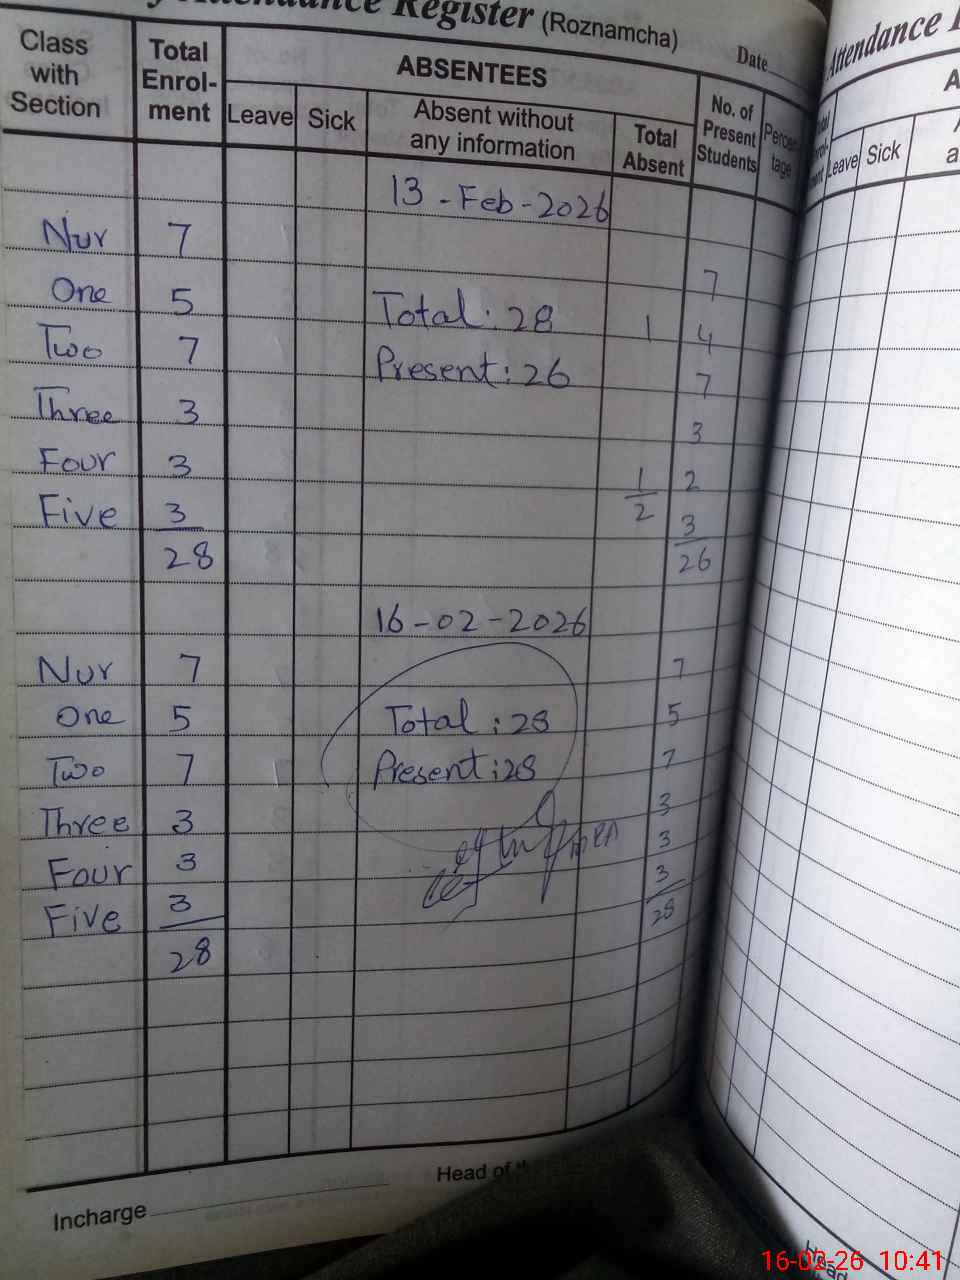 Attendance Register (Roznamcha)
Date
Class with Section | Total Enrol-ment | ABSENTEES | No. of Present Students
Leave | Sick | Absent without any information | Total Absent
13 - Feb - 2026
Nur 7 7
One 5 Total : 28 1 4
Two 7 Present : 26 7
Three 3 3
Four 3 1 2
Five 3 2 3
28 26
16 - 02 - 2026
Nur 7 7
One 5 Total : 28 5
Two 7 Present : 28 7
Three 3 3
Four 3 3
Five 3 3
28 28
Incharge
Head of
Attendance
Leave | Sick
16-02-26 10:41